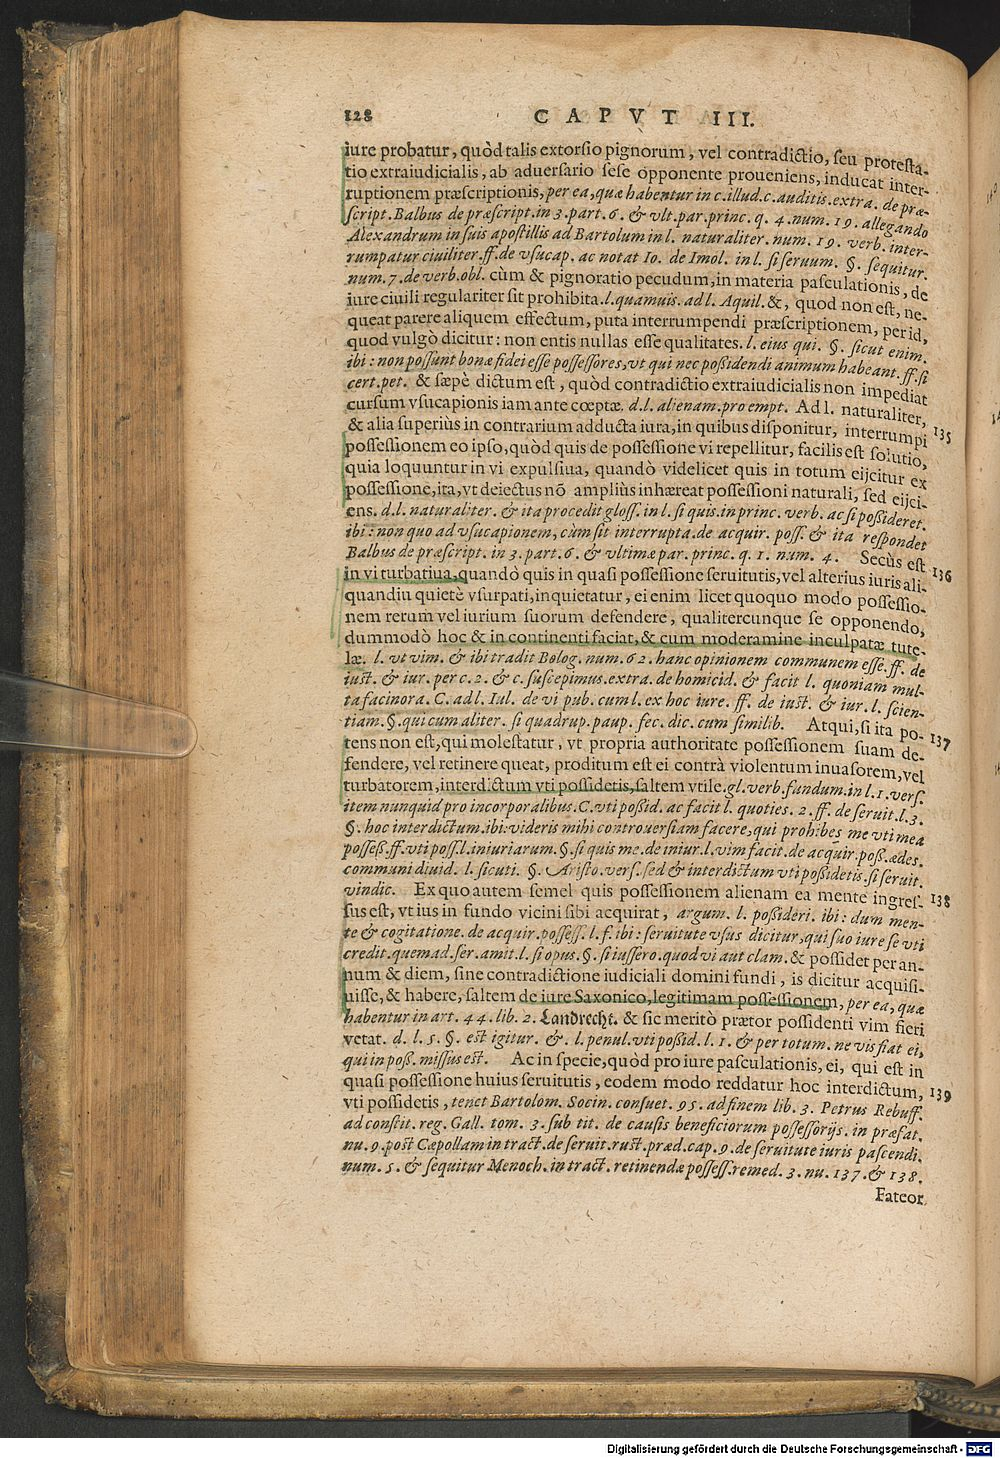 128 CAPVT III.
iure probatur, quòd talis extorsio pignorum, vel contradictio, seu protesta-
tio extraiudicialis, ab aduersario sese opponente proueniens, inducat inter-
ruptionem præscriptionis, per ea, quæ habentur in c. illud. c. auditis. extra. de præ-
script. Balbus de præscript. in 3. part. 6. & vlt. par. princ. q. 4. num. 19. allegando
Alexandrum in suis apostillis ad Bartolum in l. naturaliter. num. 19. verb. inter-
rumpatur ciuiliter. ff. de vsucap. ac notat Io. de Imol. in l. si seruum. §. sequitur.
num. 7. de verb. obl. cùm & pignoratio pecudum, in materia pasculationis, de
iure ciuili regulariter sit prohibita. l. quamuis. ad l. Aquil. &, quod non est, ne-
queat parere aliquem effectum, puta interrumpendi præscriptionem, per id,
quod vulgò dicitur: non entis nullas esse qualitates. l. eius qui. §. sicut enim.
ibi: non possunt bonæ fidei esse possessores, vt qui nec poßidendi animum habeant. ff. si
cert. pet. & sæpè dictum est, quòd contradictio extraiudicialis non impediat
cursum vsucapionis iam ante cœptæ. d. l. alienam. pro empt. Ad l. naturaliter,
& alia superiùs in contrarium adducta iura, in quibus disponitur, interrumpi 135
possessionem eo ipso, quòd quis de possessione vi repellitur, facilis est solutio,
quia loquuntur in vi expulsiua, quandò videlicet quis in totum eijcitur ex
possessione, ita, vt deiectus nõ ampliùs inhæreat possessioni naturali, sed eijci-
ens. d. l. naturaliter. & ita procedit gloss. in l. si quis. in princ. verb. ac si poßideret.
ibi: non quo ad vsucapionem, cùm sit interrupta. de acquir. poss. & ita respondet
Balbus de præscript. in 3. part. 6. & vltimæ par. princ. q. 1. num. 4. Secùs est
in vi turbatiua, quandò quis in quasi possessione seruitutis, vel alterius iuris ali- 136
quandiu quietè vsurpati, inquietatur, ei enim licet quoquo modo possessio-
nem rerum vel iurium suorum defendere, qualitercunque se opponendo,
dummodò hoc & in continenti faciat, & cum moderamine inculpatæ tute-
læ. l. vt vim. & ibi tradit Bolog. num. 62. hanc opinionem communem esse. ff. de
iust. & iur. per c. 2. & c. suscepimus. extra. de homicid. & facit l. quoniam mul-
ta facinora. C. ad l. Iul. de vi pub. cum l. ex hoc iure. ff. de iust. & iur. l. scien-
tiam. §. qui cum aliter. si quadrup. paup. fec. dic. cum similib. Atqui, si ita po-
tens non est, qui molestatur, vt propria authoritate possessionem suam de- 137
fendere, vel retinere queat, proditum est ei contrà violentum inuasorem, vel
turbatorem, interdictum vti possidetis, saltem vtile. gl. verb. fundum. in l. 1. vers.
item nunquid pro incorporalibus. C. vti poßid. ac facit l. quoties. 2. ff. de seruit. l. 3.
§. hoc interdictum. ibi: videris mihi controuersiam facere, qui prohibes me vti mea
posseß. ff. vti poss. l. iniuriarum. §. si quis me. de iniur. l. vim facit. de acquir. poß. ædes.
communi diuid. l. sicuti. §. Aristo. vers. sed & interdictum vti poßidetis. si seruit.
vindic. Ex quo autem semel quis possessionem alienam ea mente ingres- 138
sus est, vt ius in fundo vicini sibi acquirat, argum. l. poßideri. ibi: dum men-
te & cogitatione. de acquir. possess. l. f. ibi: seruitute vsus dicitur, qui suo iure se vti
credit. quemad. ser. amit. l. si opus. §. si iussero. quod vi aut clam. & possidet per an-
num & diem, sine contradictione iudiciali domini fundi, is dicitur acquisi-
uisse, & habere, saltem de iure Saxonico, legitimam possessionem, per ea, quæ
habentur in art. 44. lib. 2. Landrecht. & sic meritò prætor possidenti vim fieri
vetat. d. l. 5. §. est igitur. &. l. penul. vti poßid. l. 1. & per totum. ne vis fiat ei,
qui in poß. missus est. Ac in specie, quòd pro iure pasculationis, ei, qui est in
quasi possessione huius seruitutis, eodem modo reddatur hoc interdictum, 139
vti possidetis, tenet Bartolom. Socin. consuet. 95. ad finem lib. 3. Petrus Rebuff.
ad constit. reg. Gall. tom. 3. sub tit. de causis beneficiorum possessorijs. in præfat.
nu. 9. post Cæpollam in tract. de seruit. rust. præd. cap. 9. de seruitute iuris pascendi.
num. 5. & sequitur Menoch. in tract. retinendæ possess. remed. 3. nu. 137. & 138.
Fateor
Digitalisierung gefördert durch die Deutsche Forschungsgemeinschaft - DFG